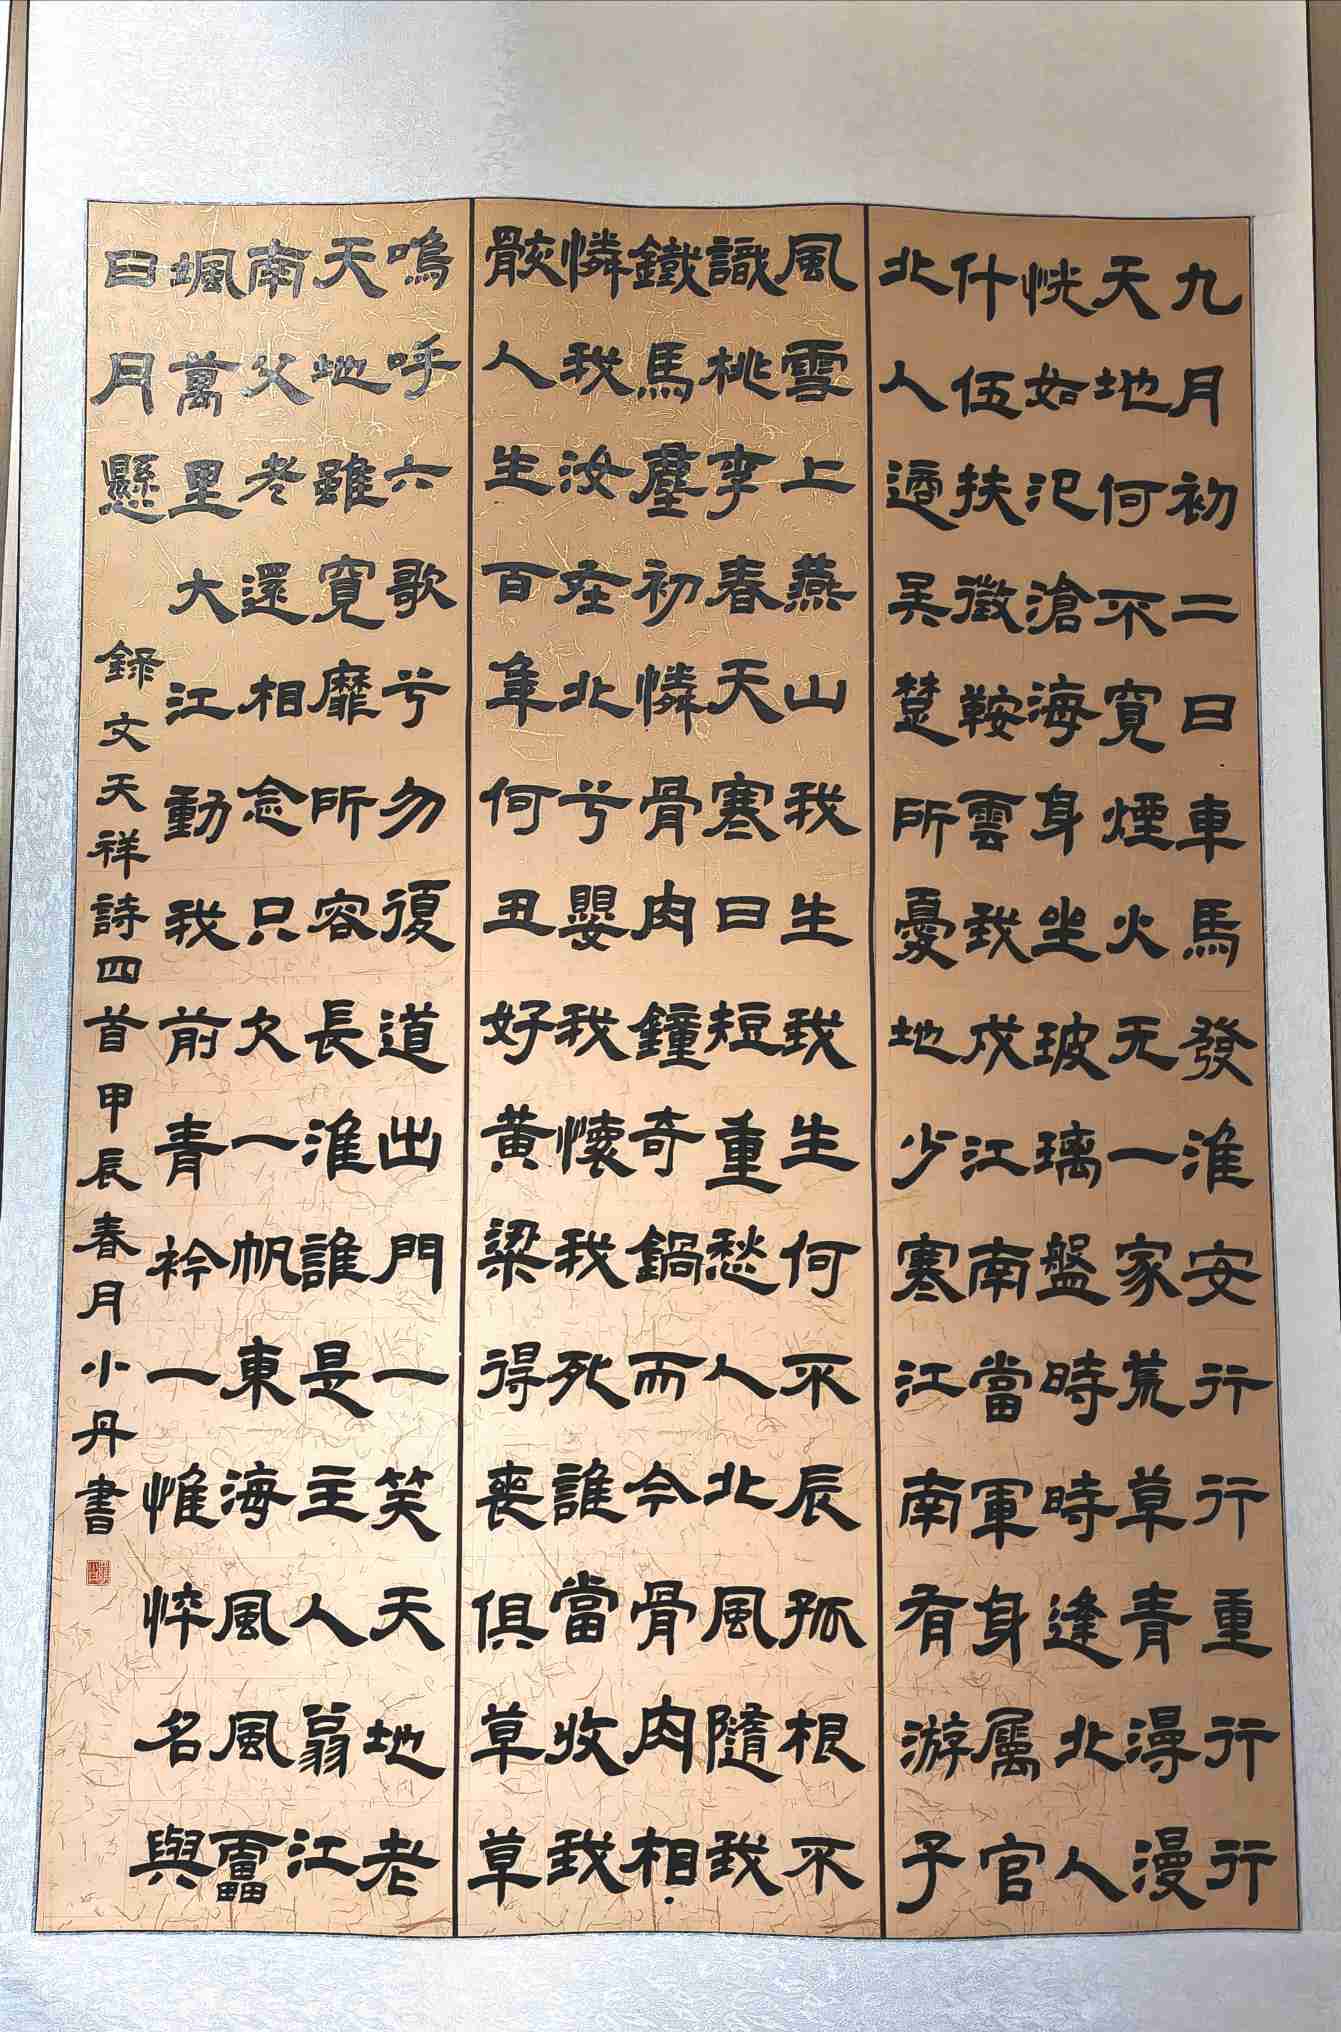 九月初二日車馬發淮安行行重行行
天地何不寬煙火无一家荒草青漫漫
恍如氾滄海身坐玻璃盤時時逢北人
什伍扶徵鞍雲我戍江南當軍身屬官
北人適吳楚所憂地少寒江南有游子
風雪上燕山我生我生何不辰孤根不
識桃李春天寒日短重愁人北風隨我
鐵馬塵初憐骨肉鐘奇禍而今骨肉相
憐我汝在北兮嬰我懷我死誰當收我
骸人生百年何丑好黃粱得喪俱草草
嗚呼六歌兮勿復道出門一笑天地老
天地雖寬靡所容長淮誰是主人翁江
南父老還相念只欠一帆東海風風雷
颯萬里大江動我前青衿一惟悴名與
日月懸
錄文天祥詩四首甲辰春月小丹書